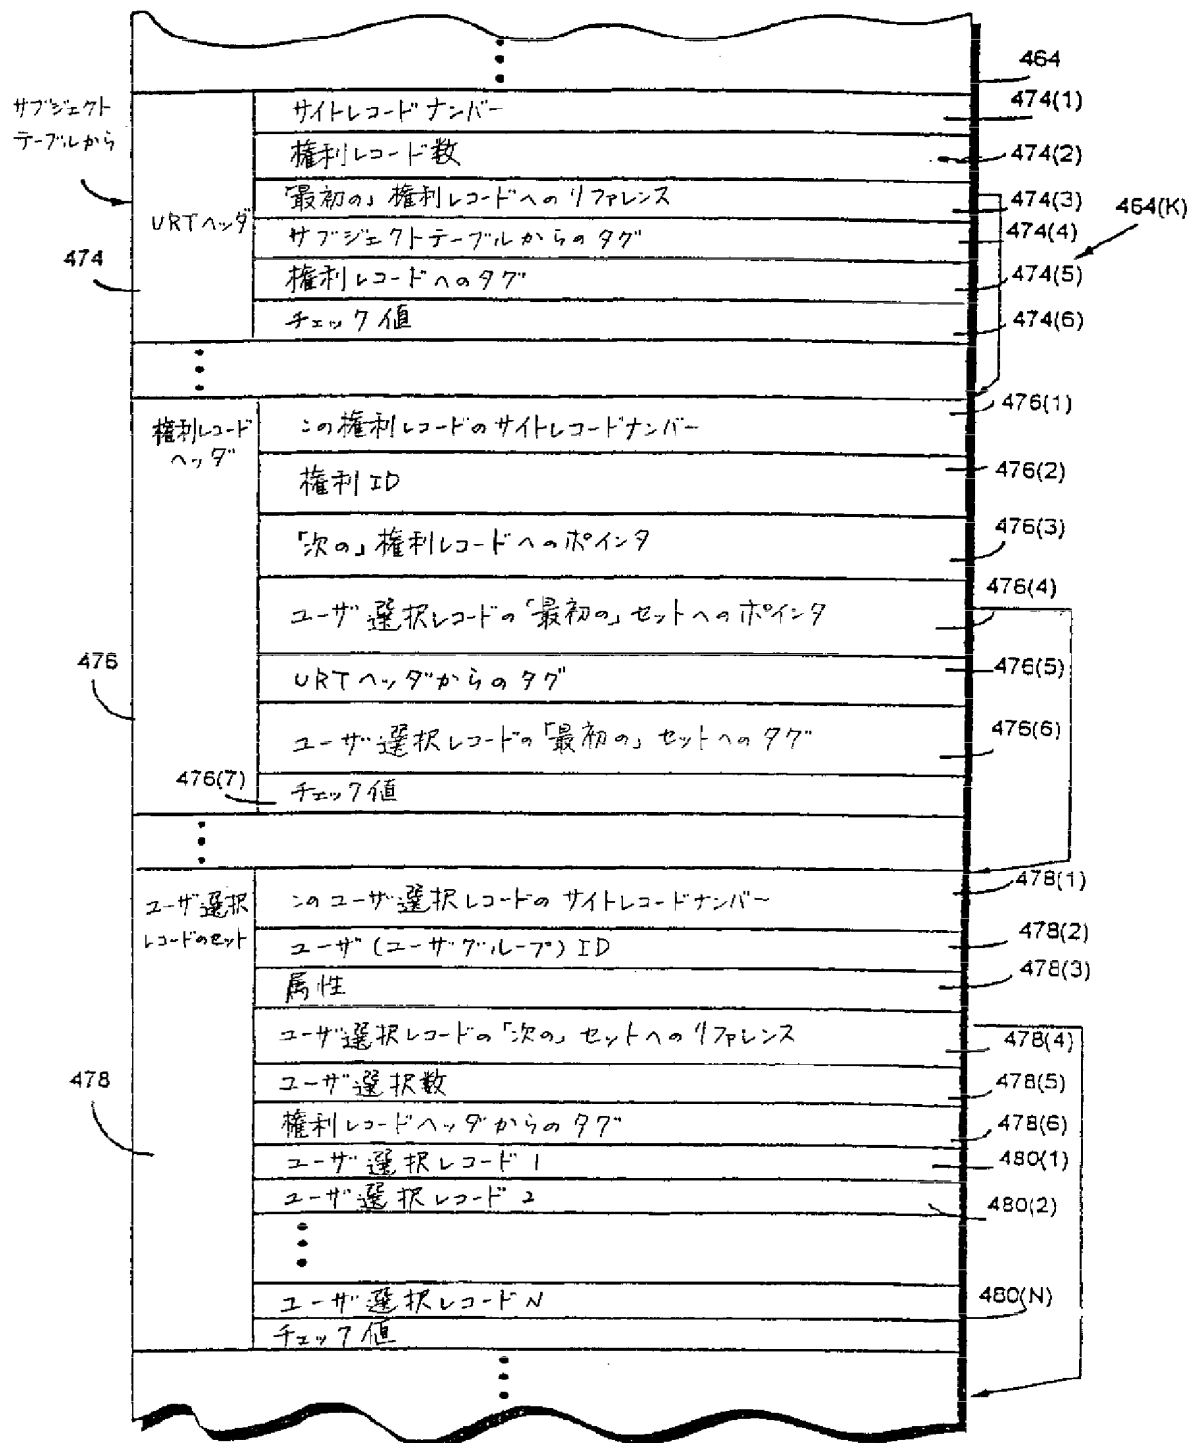 464
サブジェクト
テーブルから
URTヘッダ
474
サイトレコードナンバー
474(1)
権利レコード数
474(2)
「最初の」権利レコードへのリファレンス
474(3)
464(K)
サブジェクトテーブルからのタグ
474(4)
権利レコードへのタグ
474(5)
チェック値
474(6)
権利レコード
ヘッダ
476
この権利レコードのサイトレコードナンバー
476(1)
権利ID
476(2)
「次の」権利レコードへのポインタ
476(3)
ユーザ選択レコードの「最初の」セットへのポインタ
476(4)
URTヘッダからのタグ
476(5)
ユーザ選択レコードの「最初の」セットへのタグ
476(6)
476(7)
チェック値
ユーザ選択
レコードのセット
478
このユーザ選択レコードのサイトレコードナンバー
478(1)
ユーザ(ユーザグループ)ID
478(2)
属性
478(3)
ユーザ選択レコードの「次の」セットへのリファレンス
478(4)
ユーザ選択数
478(5)
権利レコードヘッダからのタグ
478(6)
ユーザ選択レコード1
480(1)
ユーザ選択レコード2
480(2)
ユーザ選択レコードN
480(N)
チェック値